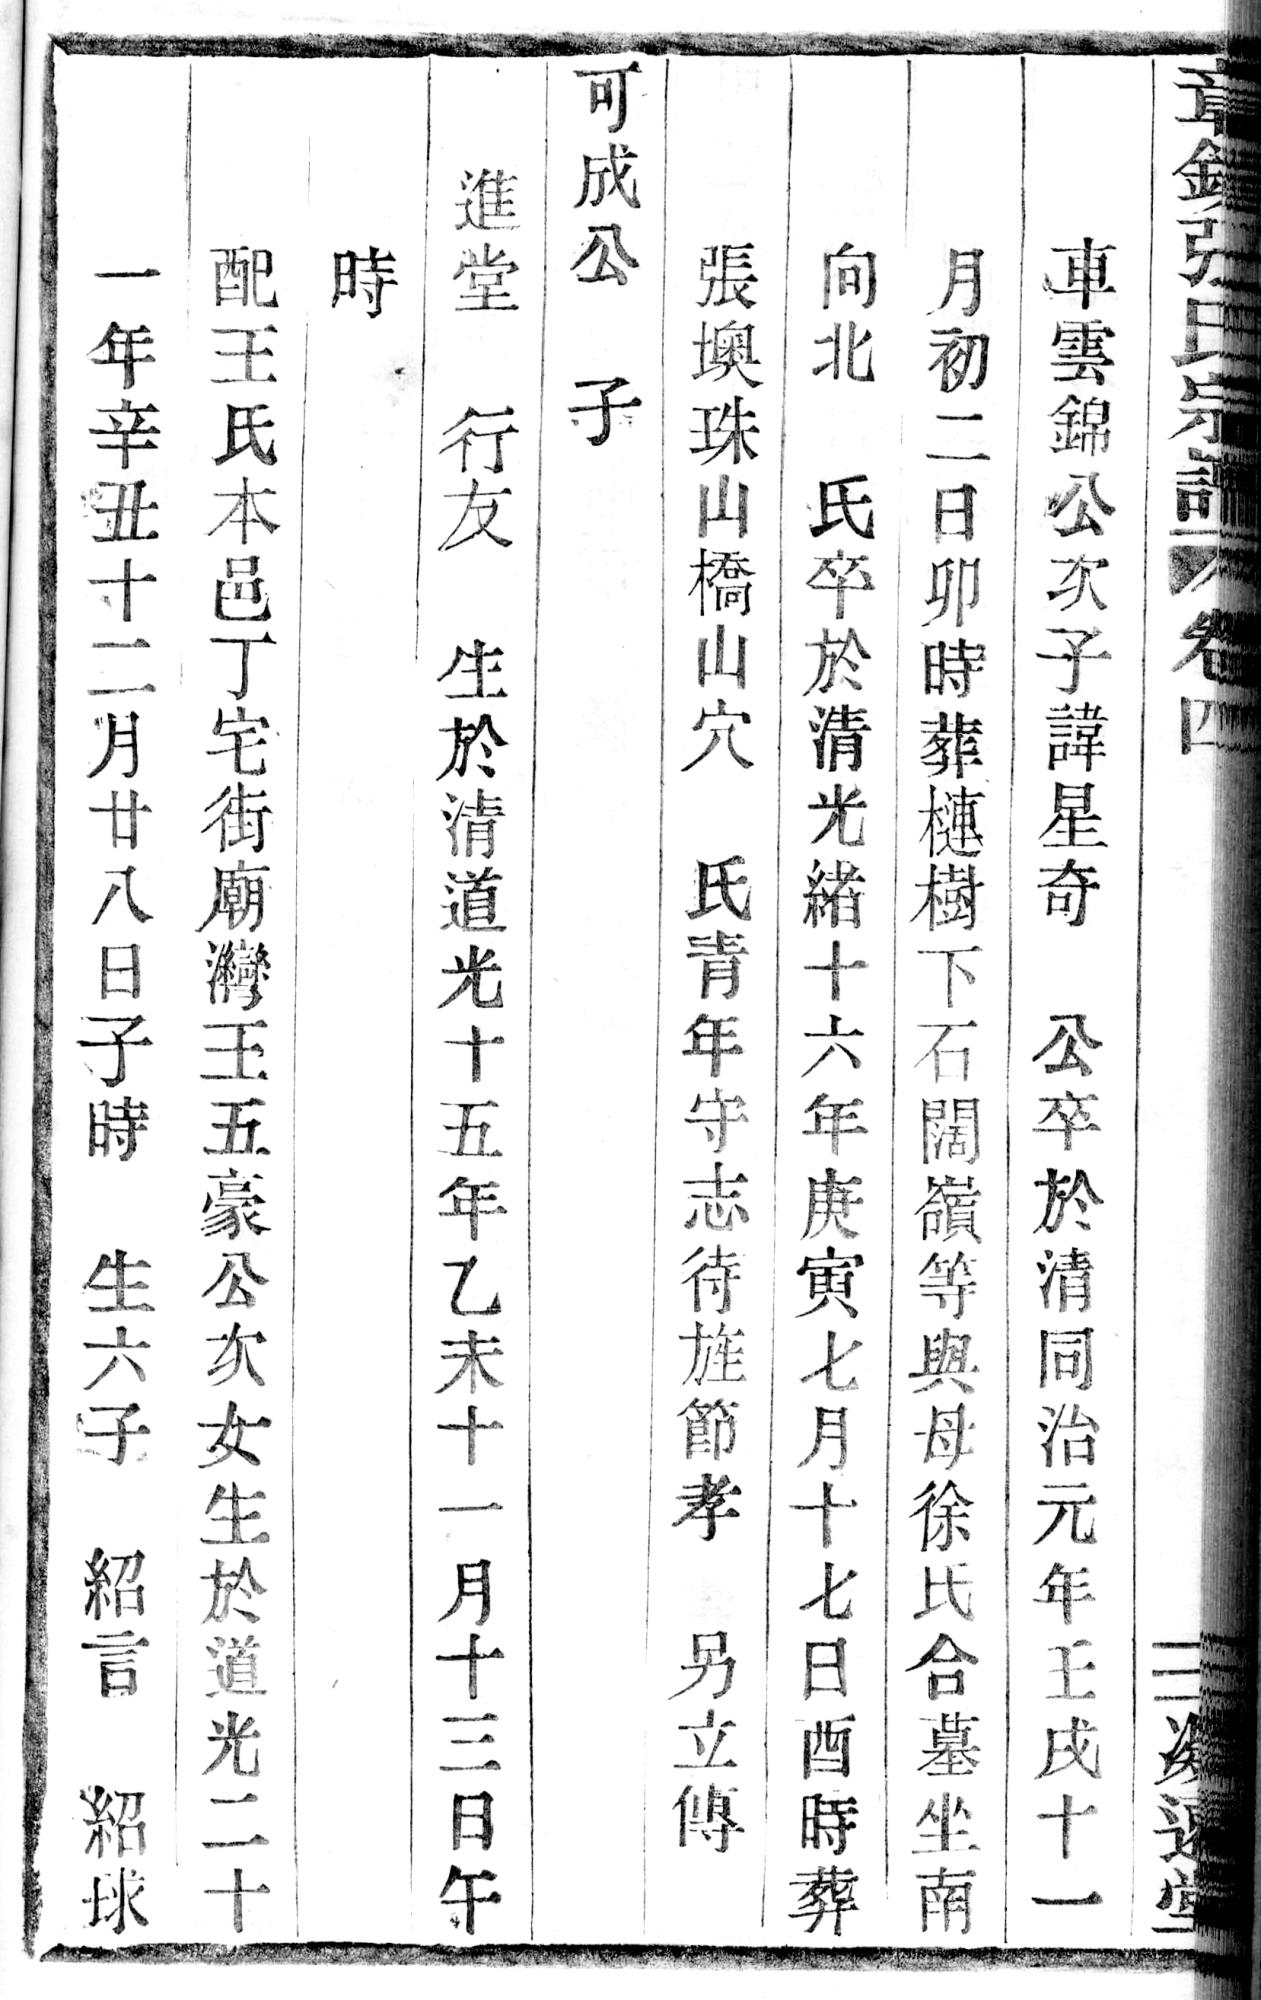 章鎮張氏宗譜 卷四 二 追遠堂
車雲錦公次子諱星奇 公卒於清同治元年壬戌十一
月初二日卯時葬槤樹下石闊嶺等與母徐氏合墓坐南
向北 氏卒於清光緒十六年庚寅七月十七日酉時葬
張墺珠山橋山山穴 氏青年守志待旌節孝 另立傳
可成公 子
進堂 行友 生於清道光十五年乙未十一月十三日午
時
配王氏本邑丁宅街廟灣王五豪公次女生於道光二十
一年辛丑十二月廿八日子時 生六子 紹言 紹球